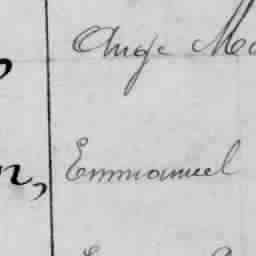 Ange
n, Emmanuel